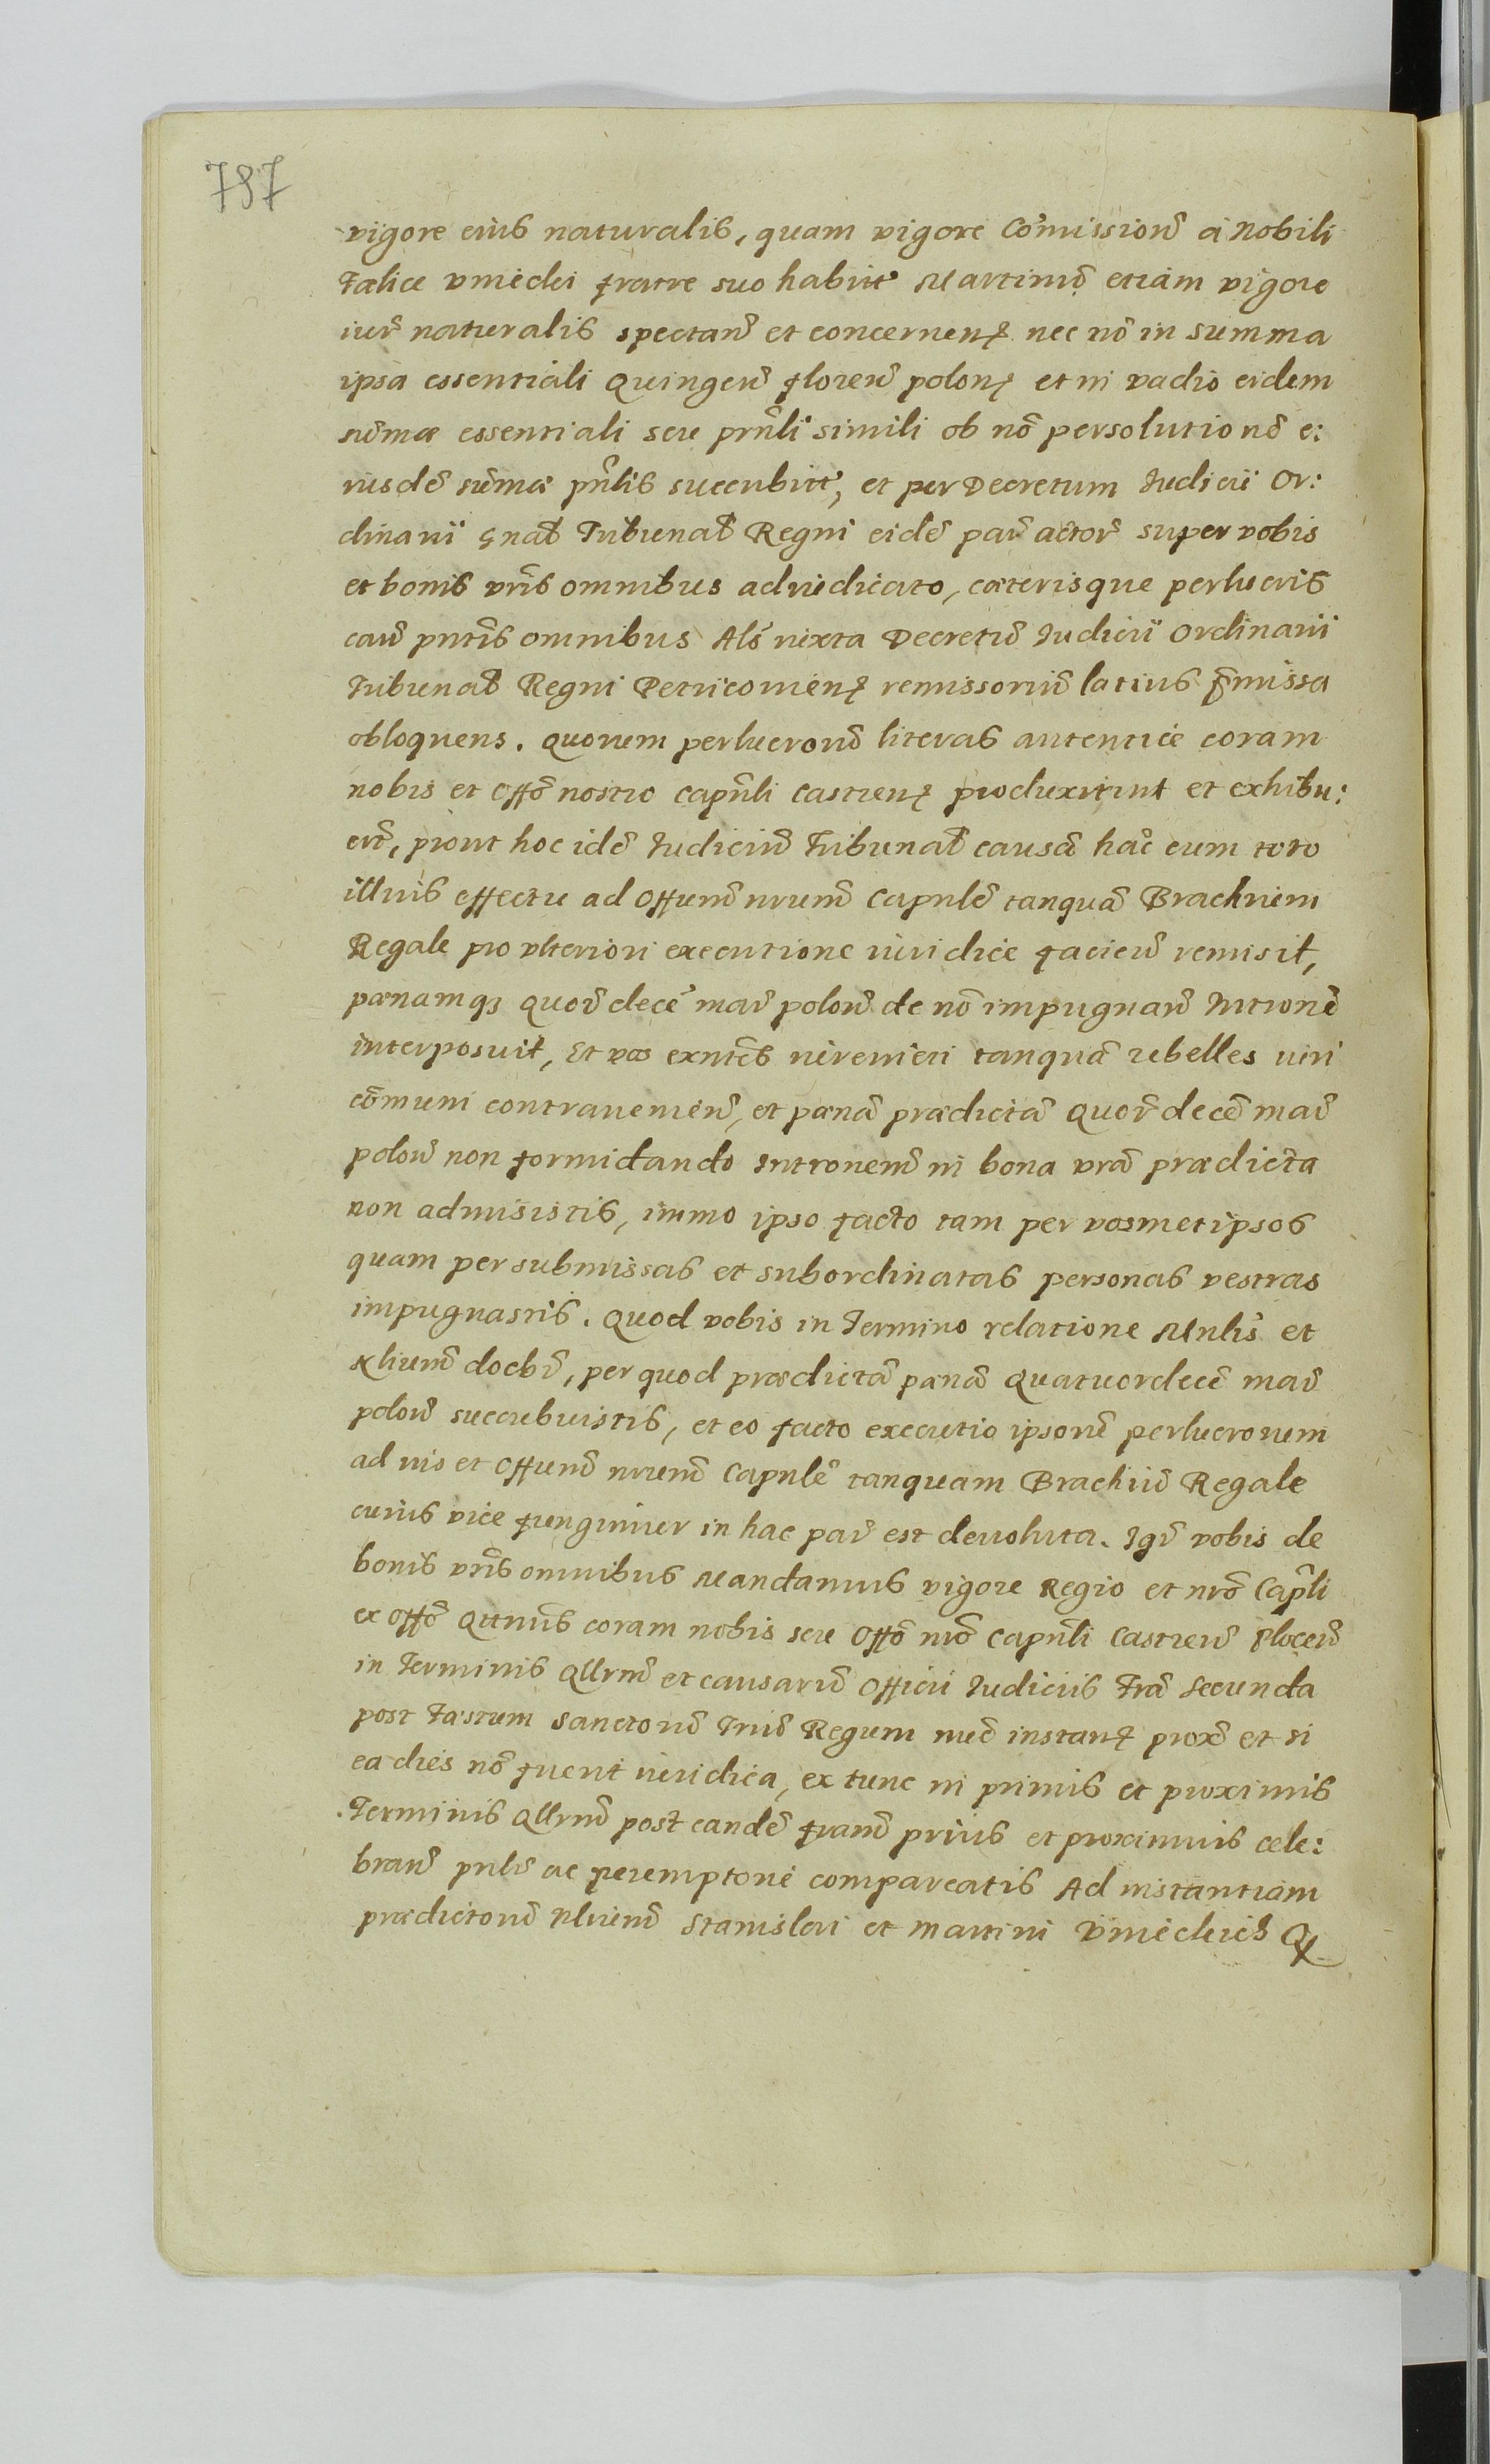 787
vigore eius naturalis, quam vigore Cõmissionũ a Nobili
Fælice Vmiedzi fratre suo habuit Martinũ etiam vigore
iurẽ naturalis spectanẽ et concernenẽ nec nõ in summa
ipsa essentiali Quingenẽ florenẽ polonẽ et in vadio eidem
sum̃æ essentiali seu prñli simili ob nõ persolutionẽ e:
iusdẽ sum̃æ pñlis succubitẽ, et per Decretum Iudicii Or:
dinarii Gnal̃ Tribunal̃ Regni eidẽ parẽ actorẽ super vobis
et bonis vrĩs omnibus adiudicato, cæterisque perlucris
cauẽ pntĩs omnibus Alẽ iuxta Decretũ Iudicii Ordinarii
Tribunal̃ Regni Petricouienẽ remissoriũ latius p̃missa
obloquens. Quorum perlucrorũ literas autentice coram
nobis et Offõ nostro Capñli Castrenẽ produxerunt et exhibu:
erũt, prout hoc idẽ Iudiciũ Tribunal̃ causã hãc cum toto
illius effectu ad Offium̃ nrum̃ Capnlẽ tanquã Brachium
Regale pro vlteriori executione iuridice faciend̃ remisit,
pænamq3 Quorũdecẽ marẽ polonẽ de nõ impugnanẽ Intronẽ
interposuit, Et vos exntẽs iureuicti tanquã rebelles iuri
cõmuni contrauenienẽ, et pænã prædictã Quorũdecẽ marẽ
polonẽ non formidando Intronem̃ in bona vrã prædicta
non admisistis, immo ipso facto tam per vosmetipsos
quam per submissas et subordinatas personas vestras
impugnastis. Quod vobis in Termino relatione Mnlis̃ et
Nlium̃ docbr̃, per quod prædictã pænã Quatuordecẽ marẽ
polonẽ succubuistis, et eo facto executio ipsorũ perlucrorum
ad nos et Offium̃ nrum̃ Capnlẽ tanquam Brachiũ Regale
cuius vice fungimur in hac parẽ est deuoluta. Igr̃ vobis de
bonis vrĩs omnibus Mandamus vigore Regio et nrõ Cap̃li
ex Offõ Qtnus̃ coram nobis seu Offõ nrõ Capñli Castrenẽ Plocenẽ
in Terminis Qllrum̃ et causarũ Officii Iudiciis Frã Secunda
post Fæstum Sanctorũ Triũ Regum nũc instanẽ proxẽ et si
ea dies nõ fuerit iuridica, ex tunc in primis et proximis
Terminis Qllrum̃ post eandẽ fram̃ prius et proximius cele:
branẽ pnlr̃ ac peremptorie compareatis Ad instantiam
prædictorũ Nlium̃ Stanislai et Martini Vmiedzich